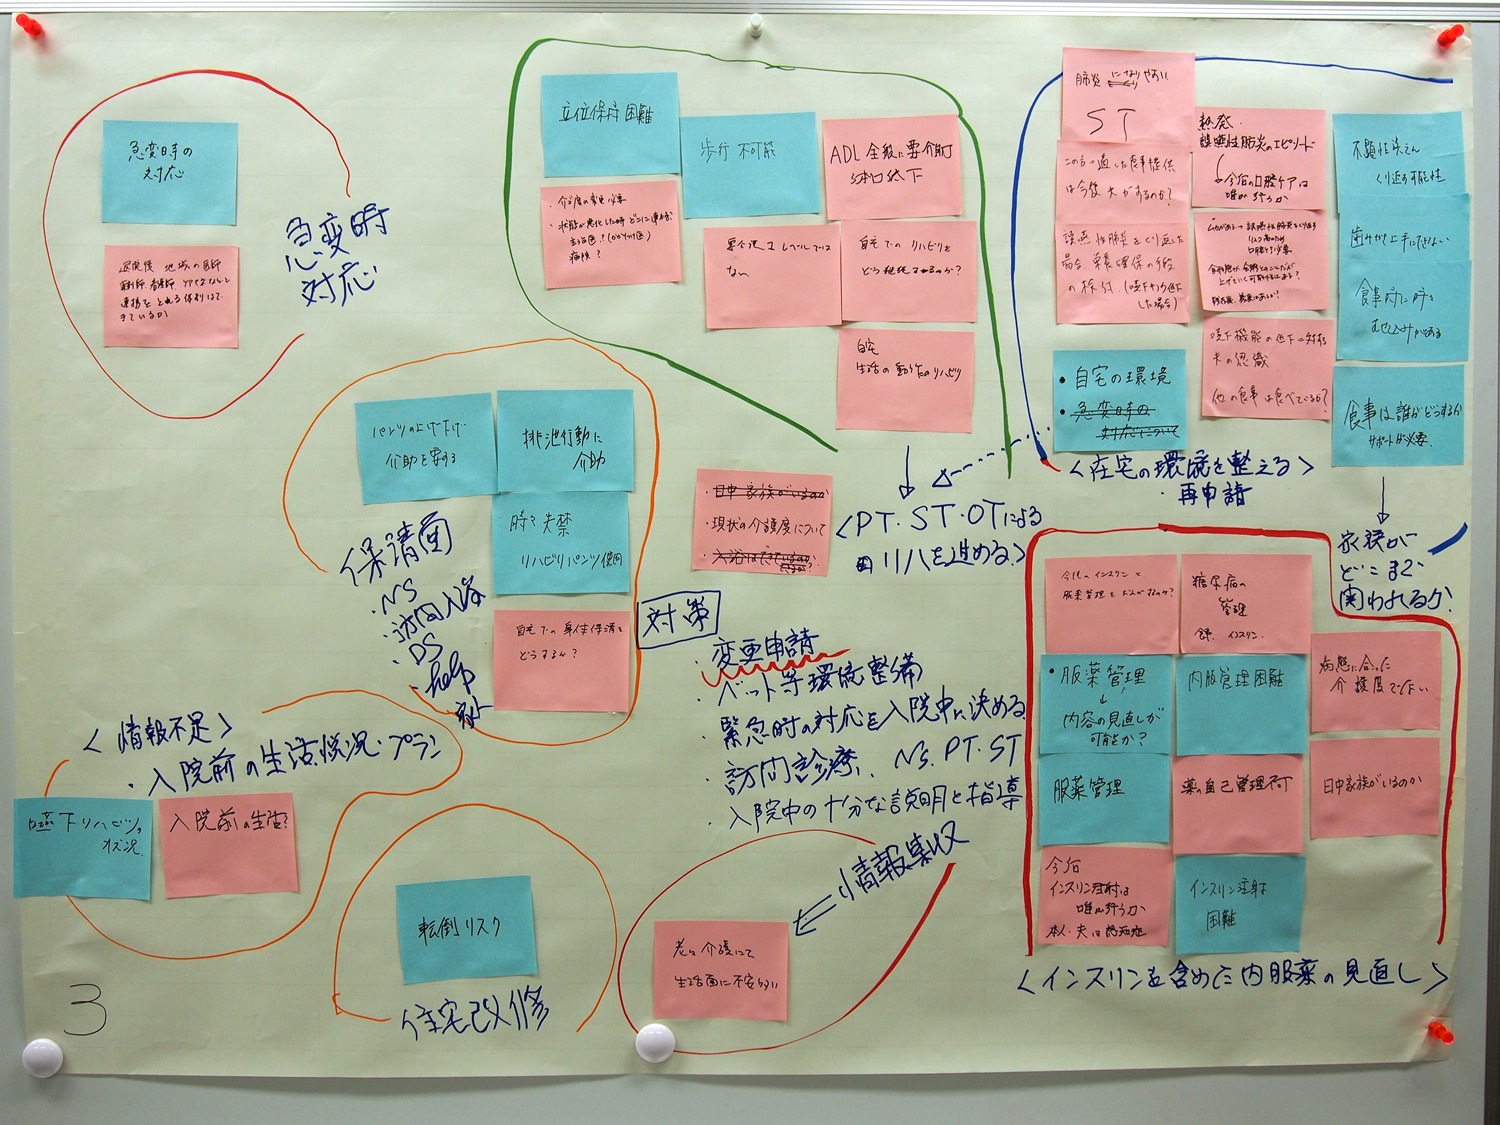 急変時の
対応
退院後 地域の医師
連携をとれる体制はで
きているか
急変時
対応
立位保持困難
・介護度の変更必要
・状態が悪化した時どこに連絡
病院?
歩行 不可能
ADL 全般に要介助
低下
ない
自宅でのリハビリを
どう継続するのか?
自宅
生活の動作のリハビリ
肺炎になりやすい
ST
この方に適した食事提供
は今後夫ができるのか?
誤嚥性肺炎をくり返した
場合、栄養確保の手段
の検討(嚥下が低下
した場合)
熱発
誤嚥性肺炎のエピソード
今後の口腔ケアは
誰が行うか
嚥下機能の低下に対する
夫の認識
他の食事は食べているか?
不顕性誤えん
くり返す可能性
歯みがき上手にできない
食事時に時々
むせ込みがある
食事は誰がどうするか
サポートが必要
・自宅の環境
・急変時の
対応について
<在宅の環境を整える>
・再申請
家族が
どこまで
関われるか?
パンツの上げ下げ
介助を要する
排泄行動に
介助
時々失禁
リハビリパンツ使用
自宅での身体保清を
どうするか?
保清面
・NS
・訪問入浴
・DS
・help
・日中家族がいるのか
・現状の介護度について
・入浴はできているのか
<PT・ST・OTによる
リハを進める>
対策
・変更申請
・ベット等環境整備
・緊急時の対応を入院中に決める
・訪問診療、NS、PT・ST
・入院中の十分な説明と指導
<情報不足>
・入院前の生活状況・プラン
嚥下リハビリの
状況
入院前の生活?
転倒リスク
住宅改修
情報集収
老々介護にて
生活面に不安多い
今後のインスリンと
服薬管理をだれがするのか?
糖尿病の
管理
食事、インスリン
・服薬管理
↓
内容の見直しが
可能か?
内服管理困難
病態に合った
介護度でない
服薬管理
薬の自己管理不可
日中家族がいるのか
今后
インスリン注射は
誰が行うか
本人・夫は認知症
インスリン注射は
困難
<インスリンを含めた内服薬の見直し>
3